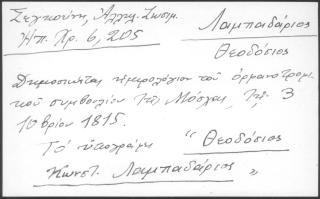 Σεγκούνη, Ἀλληλ. Σωσιμ.
Ἠπ. Χρ. 6, 205
Λαμπαδάριος
Θεοδόσιος
Δημοσιεύεται ἡμερολόγιον τοῦ
κοῦ συμβουλίου τῆς Μόσχας, 3
10βρίου 1815.
Τό ὑπογράφει "Θεοδόσιος
Κωνστ. Λαμπαδάριος"